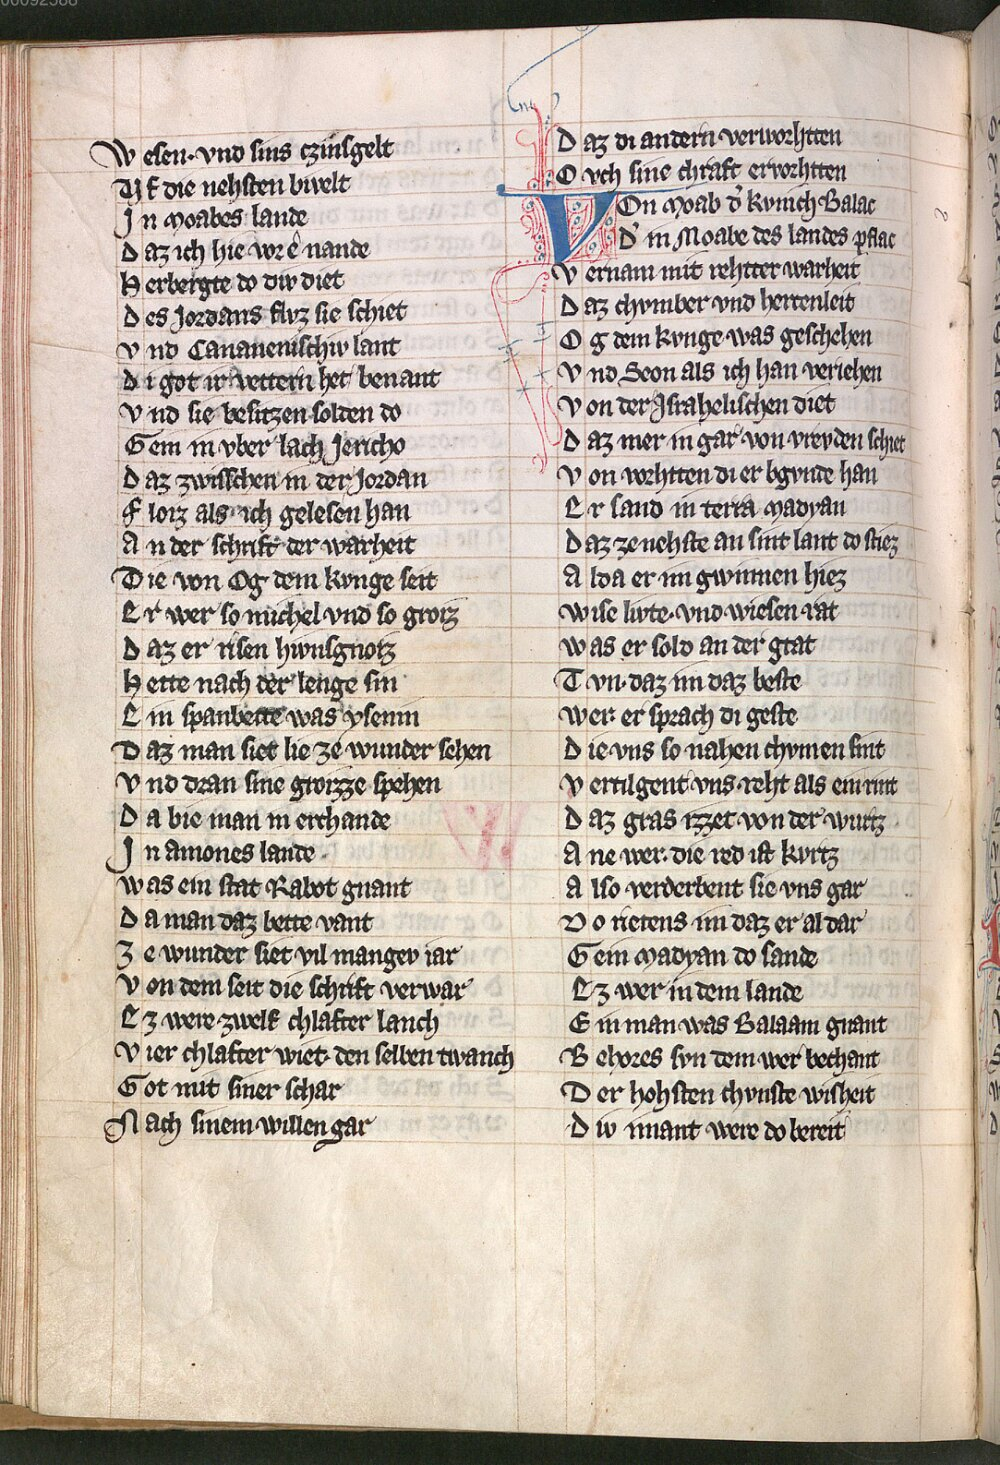 Wesen· vnd sins czinsgelt
Vf die nehsten bivelt
Jn Moabes lande
Daz ich hie vor e nande
Herbergte do div diet
Des Jordans flvz sie schiet
vnd Cananenischiv lant
di got ir vettern het benant
vnd sie besitzen solden do
Gein in vber lach Jericho
Daz zwisschen in der Jordan
Floiz als ich gelesen han
An der schrift der warheit
Die von Og dem kvnge seit
Er wer so michel vnd so groiz
Daz er risen hwnsgnoiz
Hette nach der lenge sin
Ein spanbette was ysenin
Daz man siet lie ze wunder sehen
vnd dran sine groizze spehen
Da bie man in erchande
Jn amones lande
was ein stat Rabot gnant
Da man daz bette vant
Ze wunder siet vil mangev iar
von dem seit die schrift verwar
Ez were zwelf chlafter lanch
Vier chlafter wiet· den selben twanch
Got mit siner schar
Nach sinem willen gar
Daz di andern verworhtten
Ovch sine chraft ervorhtten
VOn Moab d' kvnich Balac
D' in Moabe des landes pflac
vernam mit rehtter warheit
Daz chvmber vnd hertenleit
Og dem kvnge was geschehen
vnd Seon als ich han veriehen
von der Jsrahelischen diet
Daz mer in gar von vrevden schiet
von vorhtten di er bgvnde han
Er sand in terra Madyan
Daz ze nehste an sint lant do stiez
Alda er im gwinnen hiez
wise livte· vnd wiesen rat
was er sold an der gtat
Tvn· daz im daz beste
wer· er sprach di geste
Die vns so nahen chvmen sint
vertilgent vns· reht als ein rint
Daz gras izzet von der wurtz
Ane wer· die red ist kvrtz
Also verderbent sie vns gar
Do rietens im daz er aldar
Gein Madyan do sande
Ez wer in dem lande
Ein man was Balaam gnant
Behores svn dem wer bechant
Der hohsten chvnste wisheit
Div niant were do bereit